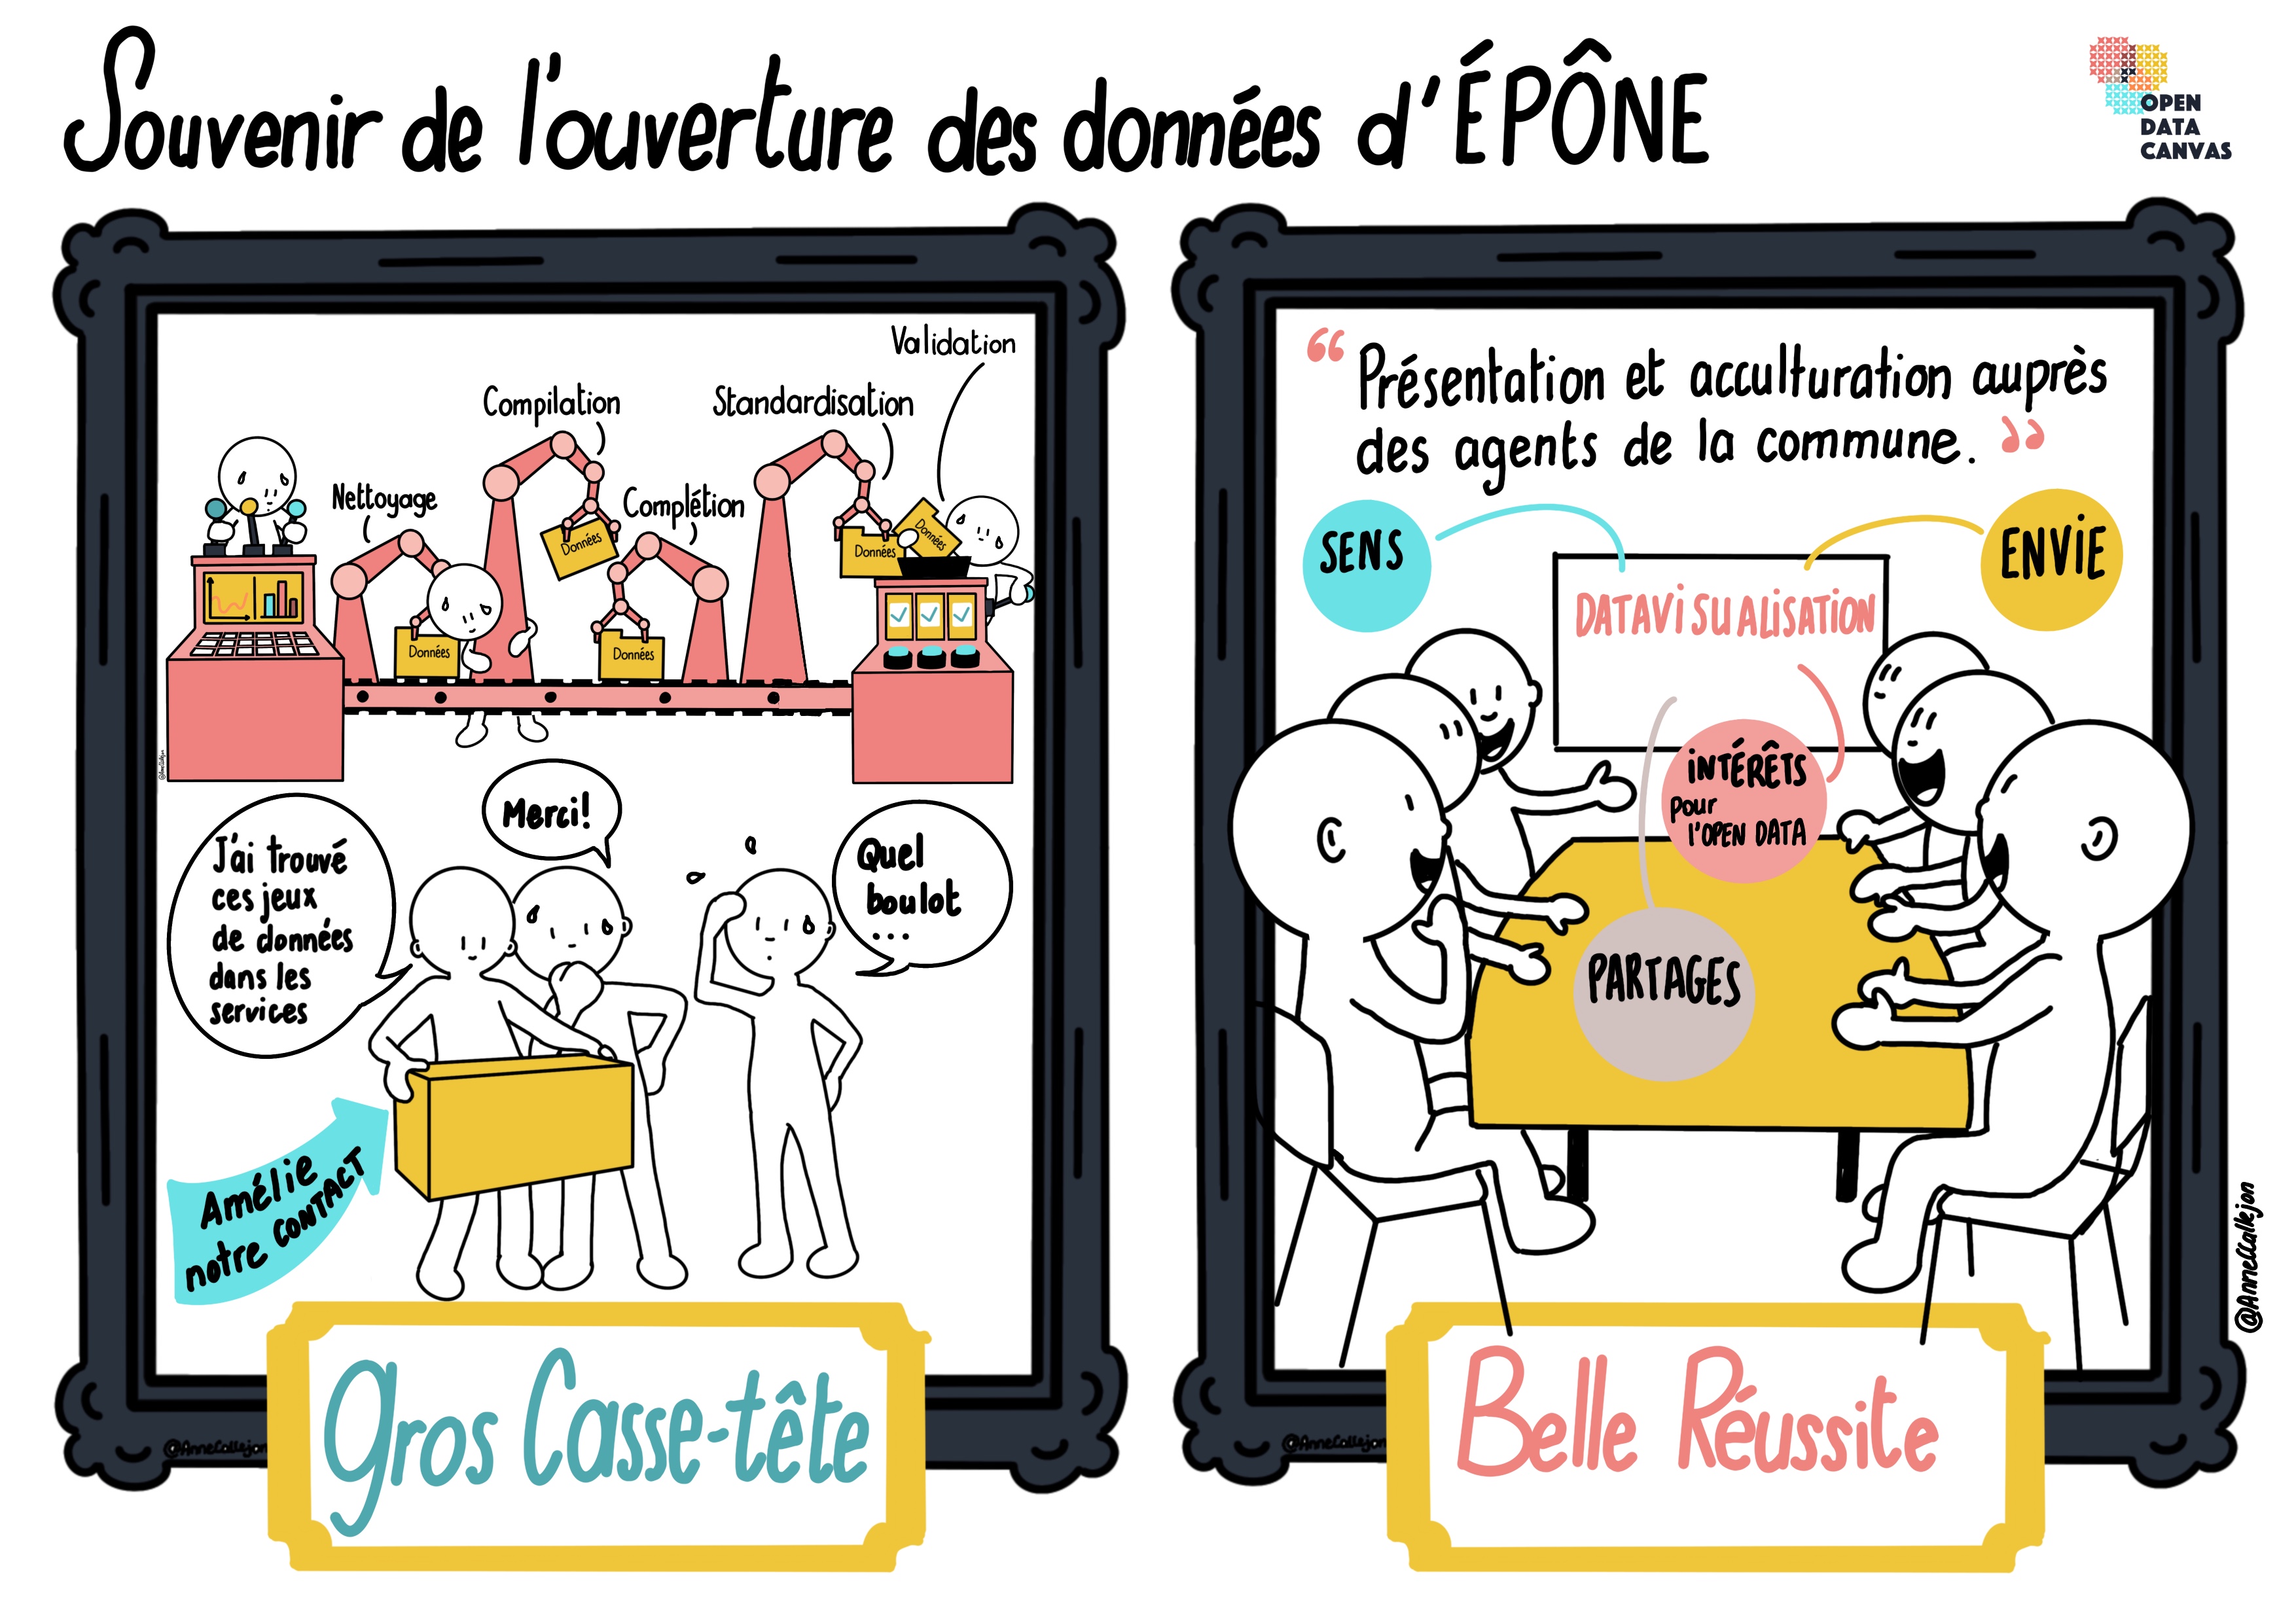 Souvenir de l'ouverture des données d'ÉPÔNE
OPEN
DATA
CANVAS
Validation
Compilation
Standardisation
Nettoyage
Complétion
Données
Données
Données
Données
Données
J'ai trouvé
ces jeux
de données
dans les
services
Merci!
Quel
boulot
...
Amélie
notre CONTACT
@AnneCallejon
Gros Casse-tête
“ Présentation et acculturation auprès
des agents de la commune. ”
SENS
ENViE
DATAViSUALiSATiON
iNTÉRÊTS
pour
l'OPEN DATA
PARTAGES
@AnneCallejon
Belle Réussite
@AnneCallejon